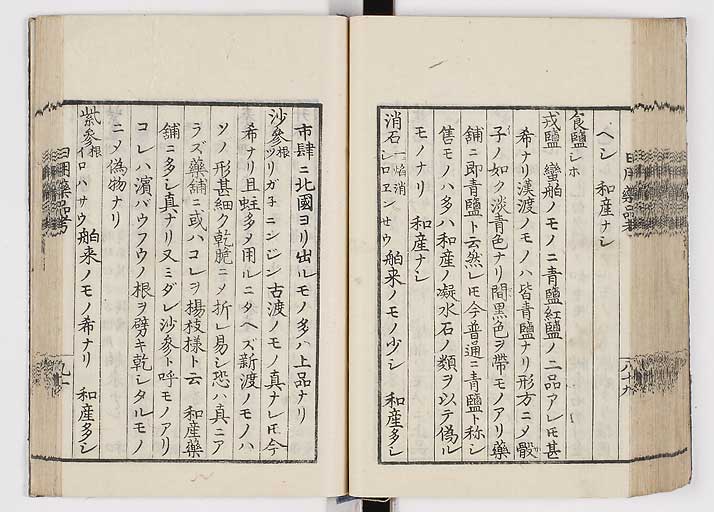 ヘシ 和産ナシ
食鹽 シホ
戎鹽 蠻舶ノモノニ青鹽紅鹽ノ二品アレ𪜈甚
希ナリ漢渡ノモノハ皆青鹽ナリ形方ニ〆骰
子ノ如ク淡青色ナリ間黒色ヲ帶モノアリ藥
舗ニ即青鹽ト云然レ𪜈今普通ニ青鹽ト称シ
售モノハ多ハ和産ノ凝水石ノ類ヲ以テ偽ル
モノナリ 和産ナシ
消石 一焔消 シロヱンセウ 舶来ノモノ少シ 和産多シ
市肆ニ北國ヨリ出ルモノ多ハ上品ナリ
沙參 根 ツリガ子ニンジン 古渡ノモノ真ナレ𪜈今
希ナリ且蛀多〆用ルニタヘズ新渡ノモノハ
ソノ形甚細ク乾脆ニ〆折レ易シ恐ハ真ニア
ラズ藥舗ニ或ハコレヲ楊枝様ト云 和産藥
舗ニ多シ真ナリ又ミダレ沙參ト呼モノアリ
コレハ濱バウフウノ根ヲ劈キ乾シタルモノ
ニ〆偽物ナリ
紫參 根 イロハサウ 舶来ノモノ希ナリ 和産多シ
日用藥品考